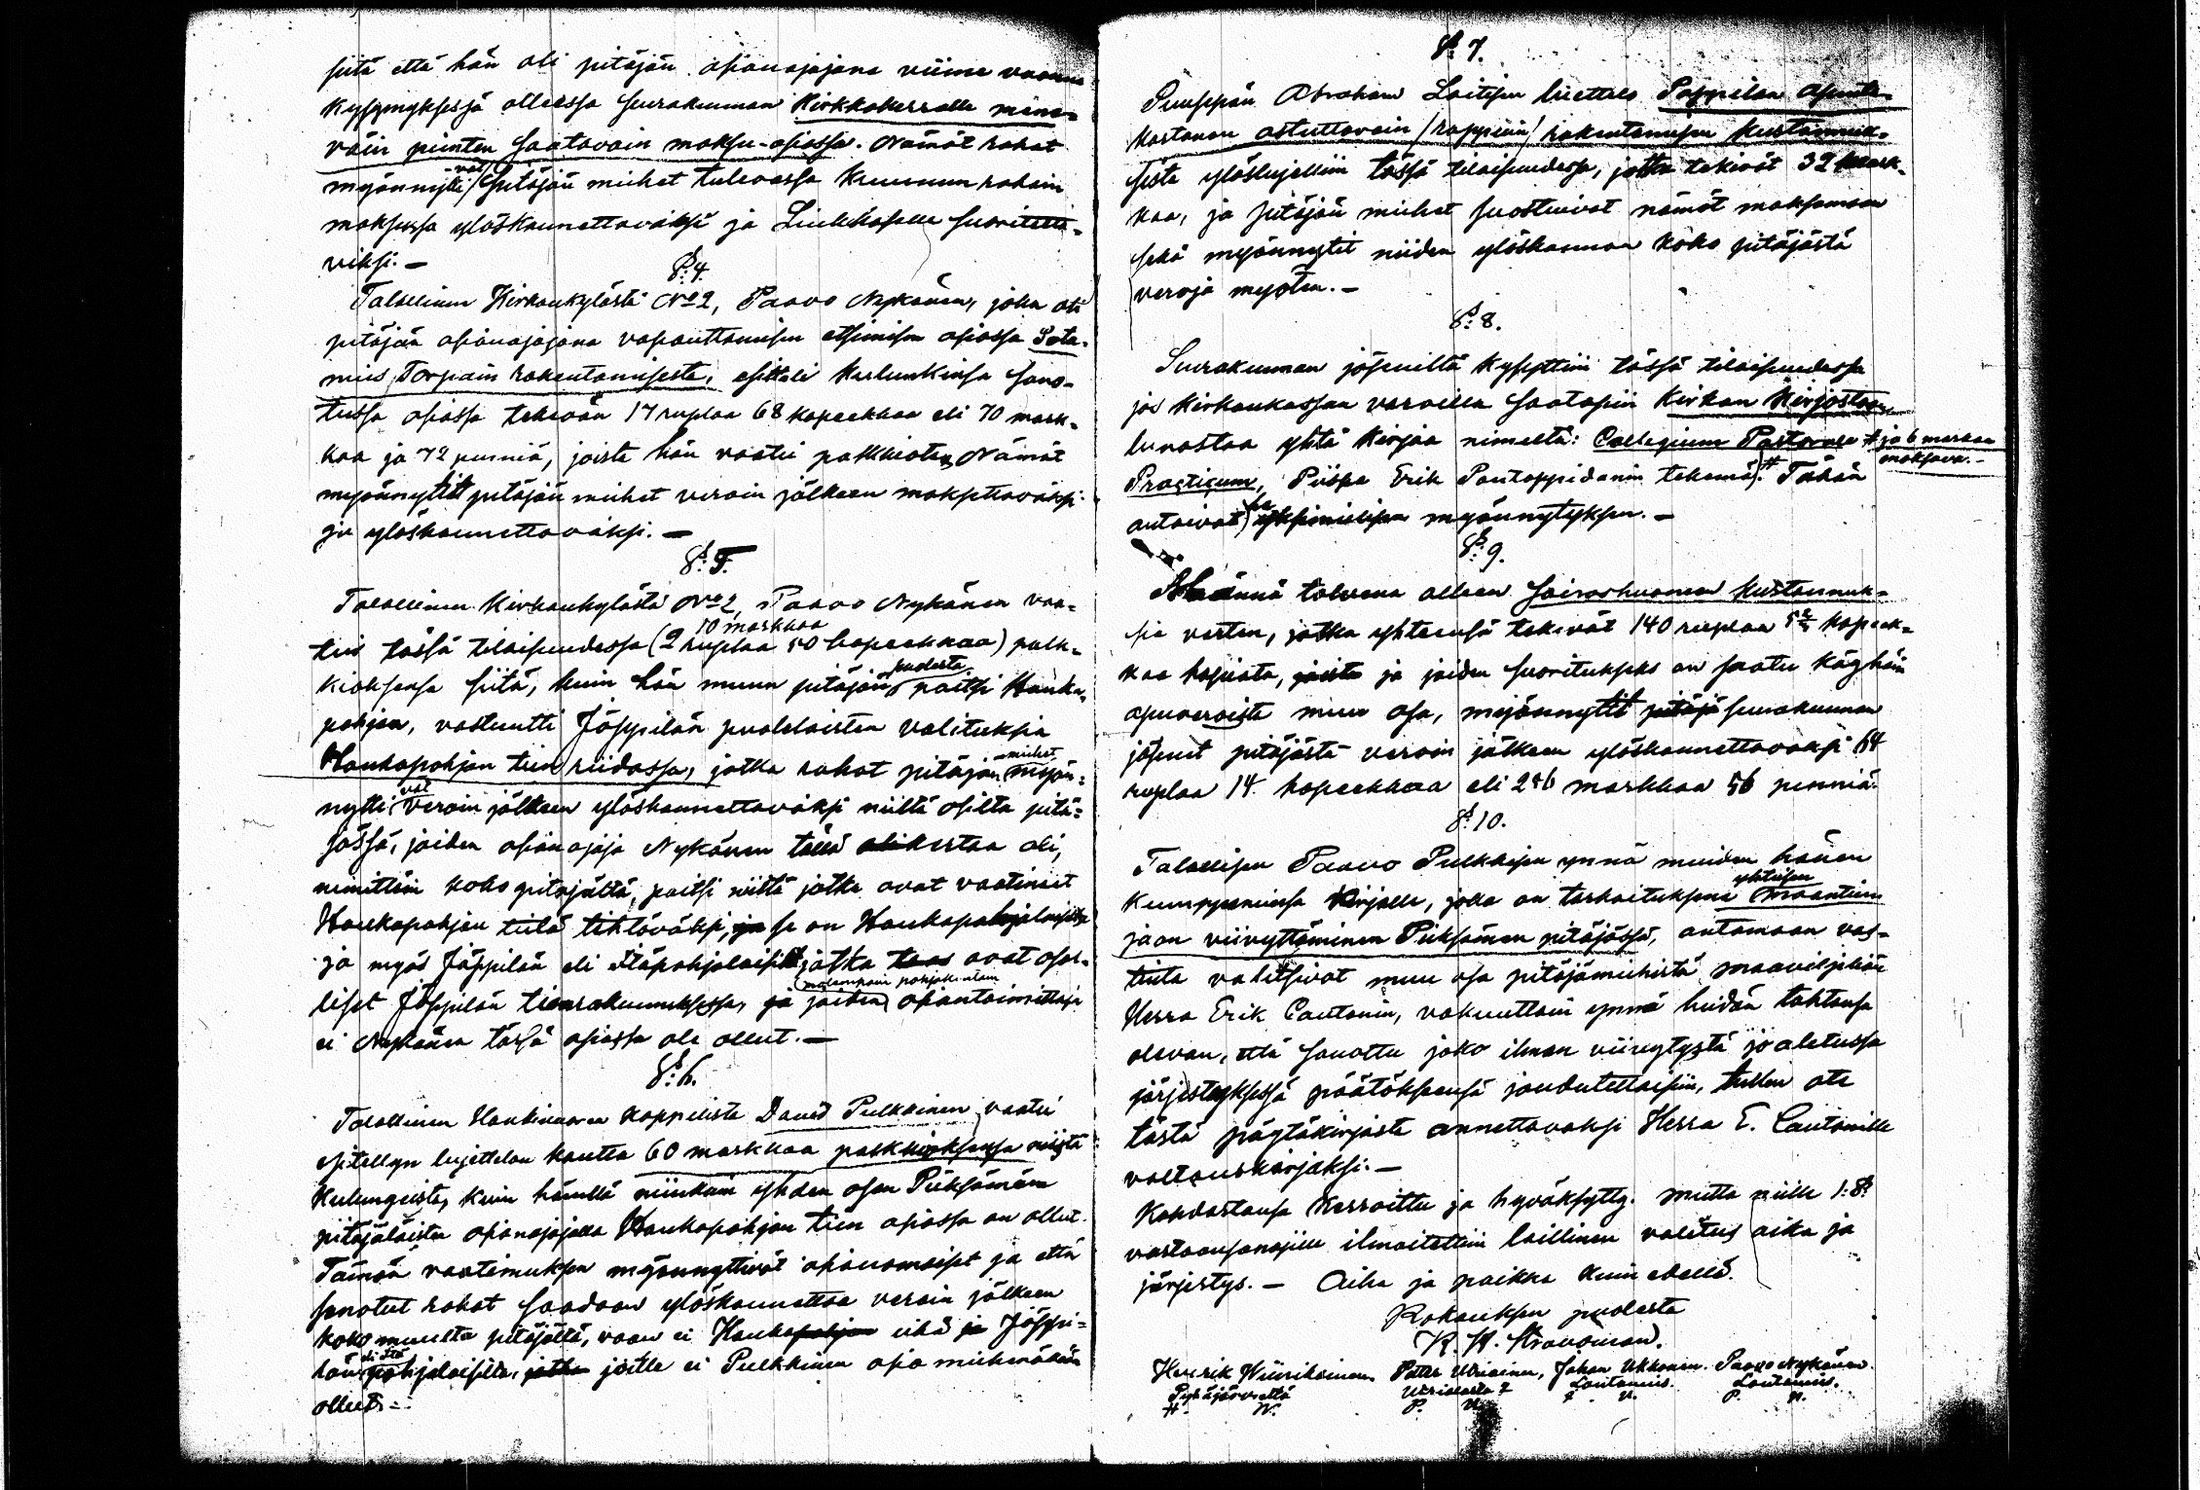 siitä että hän oli pitäjän asianajajana viime vuonna
kysymyksessä olleessa seurakunnan Kirkkoherralle mene-
väin piinten saatavain maksu-asiassa. Nämät rahat
myönnytti -vät pitäjän miehet tulevassa Kruunun rahain
maksussa ylöskannettaviksi ja Liukkoselle suoritetta-
viksi. —
§: 4.
Talollinen Kirkonkylästä No 2, Paavo Nykänen, joka oli
pitäjän asianajajana vapauttamisen etsimisen asiassa Sota-
mies Torpain rakentamisesta, esitteli kulunkinsa sano-
tussa asiassa tekevän 17 ruplaa 68 kopeekkaa eli 70 mark-
kaa ja 72 penniä, joista hän vaatii palkkiota. Nämät
myönnytit pitäjän miehet veroin jälkeen maksettavaksi
ja ylöskannettavaksi. —
§: 5.
Talollinen Kirkonkylästä No 2, Paavo Nykänen vaa-
tii tässä tilaisuudessa (2 ruplaa 50 kopeekkaa) 10 markkaa palk-
kioksensa siitä, kuin hän muun pitäjän puolesta paitsi Hauka-
pohjan, vastuutti Jäppilän puolelaisten valituksia
Haukapohjan tien riidassa, jotka rahat pitäjän miehet myön-
nytti vät veroin jälkeen ylöskannettaväksi niiltä osilta pitä-
jässä, joiden asian ajaja Nykänen tällä kertaa oli,
nimittäin koko pitäjältä, paitsi niiltä jotka ovat vaatineet
Haukapohjan tietä tehtäväksi, se on Haukapohjalaisilta
ja myös Jäppilän eli Itäpohjalaisilta jotka ovat osal-
liset Jäppilän tienrakunnuksessa, joiden molempain pohjakuntain asiantoimittaja
ei Nykänen tässä asiassa ole ollut. —
§: 6.
Talollinen Haukivuoren kappelista Daved Pulkkinen vaatii
esitellyn luettelon kautta 60 markkaa palkkioksensa niistä
kulungeista, kuin hänellä niinkuin yhden osan Pieksämäen
pitäjäläisten asianajajalla Haukapohjan tien asiassa on ollut.
Tämän vaatimuksen myönnyttivät asianomaiset ja että
sanotut rahat saadaan ylöskannattaa veroin jälkeen
koko muulta pitäjältä, vaan ei Hauka eikä Jäppi-
län eli Itä pohjalaisilta, joille ei Pulkkinen asia miehenäkään
ollut. —
§: 7.
Puusepän Abraham Laitisen luettelo Pappilan asunto-
kartanon astuttavain (rappuin) rakentamisen kustannuk-
sista ylöslujettiin tässä tilaisuudessa, jotka tekivät 32 mark-
kaa, ja pitäjän miehet suostuivat nämät maksamaan
sekä myönnytit niiden ylöskannon koko pitäjästä
veroja myöten. —
§: 8.
Seurakunnan jäseniltä kysyttiin tässä tilaisuudessa
jos Kirkonkassan varoilla saataisiin Kirkon Kirjastoon
lunastaa yhtä kirjaa nimeltä: Collegium Pastorale
# ja 6 markkaa
maksava. —
Practicum, Piispa Erik Pontoppidanin tekemä #. Tähän
antoivat he yksimielisen myönnytyksen. —
§: 9.
Männä talvena olleen sairashuoneen kustannuk-
sia varten, jotka yhteensä tekivät 140 ruplaa kopeek-
kaa hopiata, ja joiden suoritukseks on saatu käyhäin
apuvaroista muu osa, myönnytit seurakunnan
jäsenet pitäjästä veroin jälkeen ylöskannettavaksi 64
ruplaa 14 kopeekkaa eli 256 markkaa 56 penniä.
§: 10.
Talollisen Paavo Pulkkisen ynnä muiden hänen
kumppaniensa kirjalle, jolla on tarkoituksena yhteisen maantien
jaon viivyttäminen Pieksämän pitäjässä, antamaan vas-
tinta valitsivat muu osa pitäjämiehistä maaviljeliän
Herra Erik Cautonin, vakuuttain ynnä heidän tahtonsa
olevan, että sanottu jako ilman viivytystä jo aletussa
järjestyksessä päätökseensä joudutettaisiin, tullen ote
tästä pöytäkirjasta annettavaksi Herra E. Cautonille
valtauskirjaksi. —
Kohdastansa kerroittu ja hyväksytty. mutta niille 1:§:
vastaansanojille ilmoitettiin laillinen valitus aika ja
järjestys. — Aika ja paikka kuin edellä.
Kokouksen puolesta
K. H. Stråhlman.
Henrik Wiinikainen Petter Ukkoinen, Johan Ukkonen. Paavo Nykänen
Pyhäjärveltä Lautamies. Lautamies.
H. W. P. U. J. U. P. N.